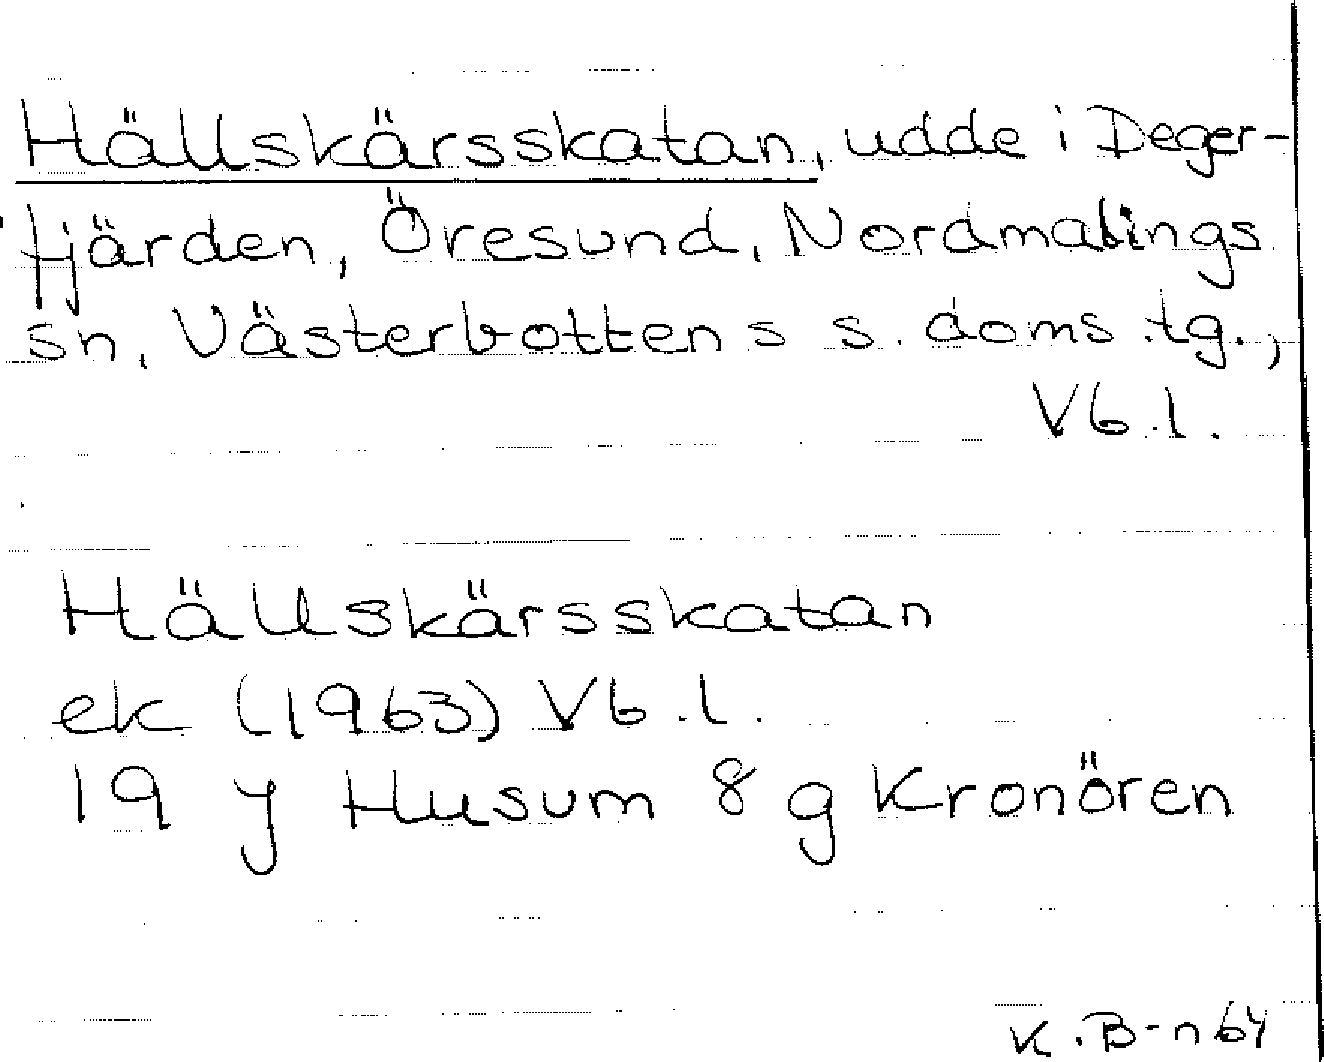 Hällskärsskatan, udde i Deger-
fjärden, Öresund, Nordmalings
sn, Västerbottens s. doms.tg.,
Vb.l.
Hällskärsskatan
ek (1963) Vb.l.
19 J Husum 8 g Kronören
K.B-n 64